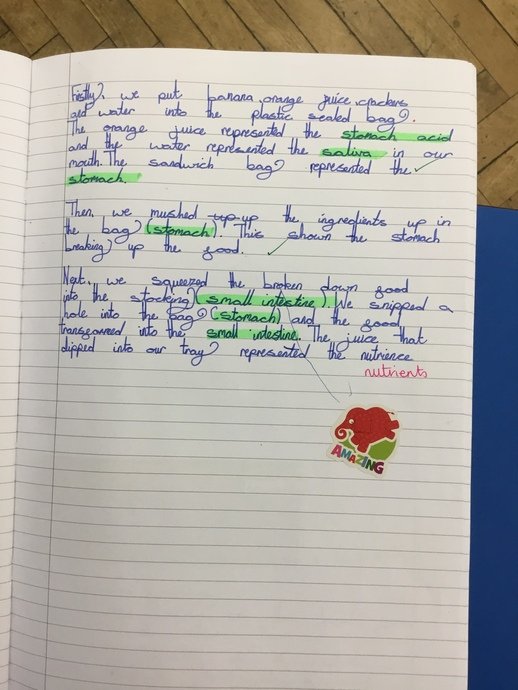 Firstly, we put banana, orange juice, crackers
and water into the plastic sealed bag.
The orange juice represented the stomach acid
and the water represented the saliva in our
mouth. The sandwich bag represented the
stomach.
Then, we mushed up up the ingredients up in
the bag (stomach). This shown the stomach
breaking up the food.
Next, we squeezed the broken down food
into the stocking (small intestine). We snipped a
hole into the bag (stomach) and the food
transeanred into the small indestine. The juice that
dipped into our tray represented the nutrience
nutrients
AMAZING